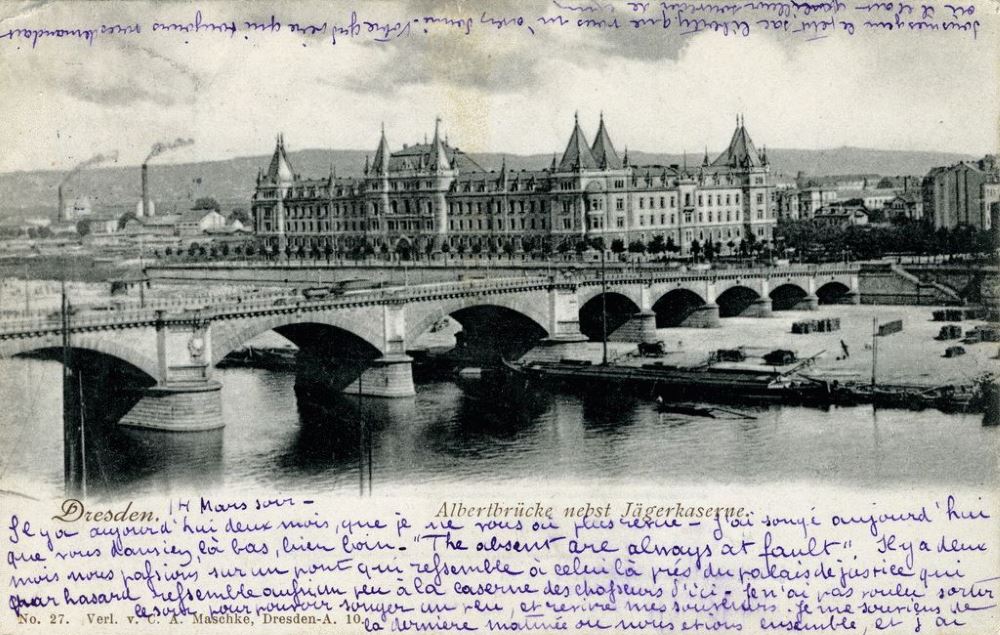 le petit sac liberty que vous m'avez donné - Votre grd père qui toujours vous demandait
où il était
Dresden. 14 Mars soir -
Albertbrücke nebst Jägerkaserne.
Il y a aujourd'hui deux mois, que je ne vous ai plus revue - J'ai songé aujourd'hui
que vous dansiez là bas, bien loin - "The absent are always at fault". Il y a deux
mois nous passions sur un pont qui ressemble à celui là près du palais de justice qui
par hasard ressemble aussi un peu à la caserne des chasseurs d'ici - Je n'ai pas voulu sortir
ce soir pour pouvoir songer un peu, et revivre mes souvenirs. Je me souviens de
No. 27. Verl. v. C. A. Maschke, Dresden-A. 10.
la dernière matinée où nous étions ensemble, et j'ai